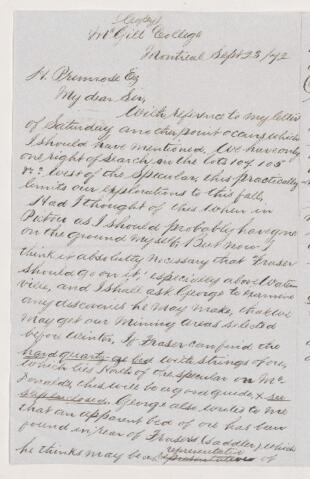 McGill College
Montreal Sept 23/72
H. Primrose Esq
My dear Sir,
With reference to my letter
of Saturday another point occurs which
I should have mentioned. We have only
one right of search, on the lots 104 105
west of the Specular, this practically
limits our explorations to this fall.
Had I thought of this when in
Pictou I should probably have gone
on the ground myself. But now I
think it absolutely necessary that Fraser
should go on it, especially above
ville, and I shall ask George to examine
any discoveries he may make, that we
may get our Mining areas selected
before winter. If Fraser can find the
hard quartz bed with strings of ore,
which lies North of the specular on Mc
Donalds, this will be a good guide, & see
map enclosed. George also writes to me
that an apparent bed of ore has been
found in rear of Frasers (Saddler), which
he thinks may be a representative of